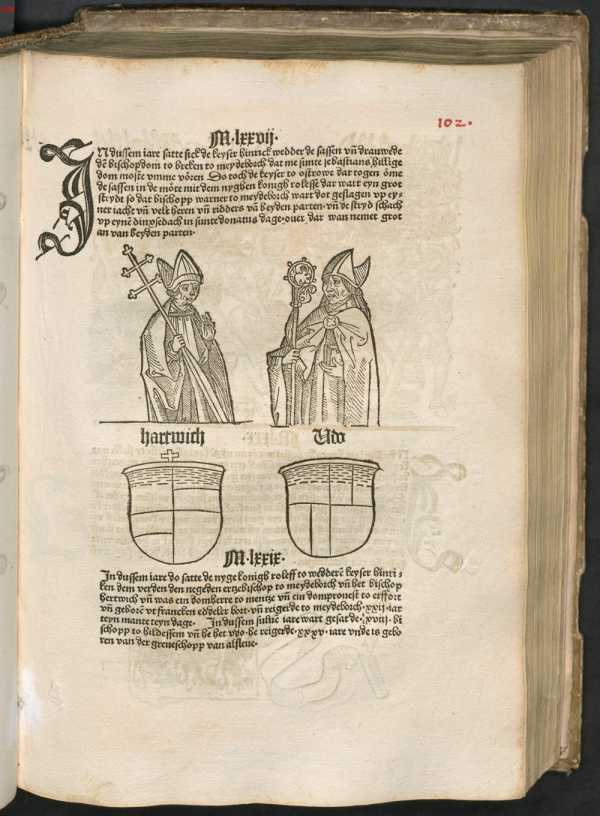 102.
M·lxxvij·
IN dussem iare satte sick de keyser hinrick wedder de sassen vñ drauwede
dē bischopdom to breken to meydeborch dat me sunte sebastians hillige
dom moste vmme vören Do toch de keyser to ostrowe dar togen öme
de sassen in de möte mit dem nyghen konigh roleffe dar wart eyn grot
strydt so dat bischopp warner to meydeborch wart dot geslagen vp ey-
ner iacht vñ velt heren vñ ridders vā beyden parten· vñ de stryd schach
vp eynē dinxsedach in sunte donatus dage· ouer dar wan nemet grot
an van beyden parten·
hartwich
Udo
M·lxxix·
In dussem iare do satte de nyge konigh roleff to wedderē keyser hinri-
ken dem verden den negeden ertzebischop to meydeborch vñ het bischop
hertwich vñ was ein domherre to mentze vñ ein dompronest to erffort
vñ geborē vt francken eddeler bort· vñ reigerde to meydeborch· xxij· iar
teyn mante teyn dage· In dussem suluē iare wart gesat de· xviij· bi
schopp to hildessem vñ he het vdo· he reigerde· xxxv· iare vnde is gebo
ren van der greueschopp van alsleue·